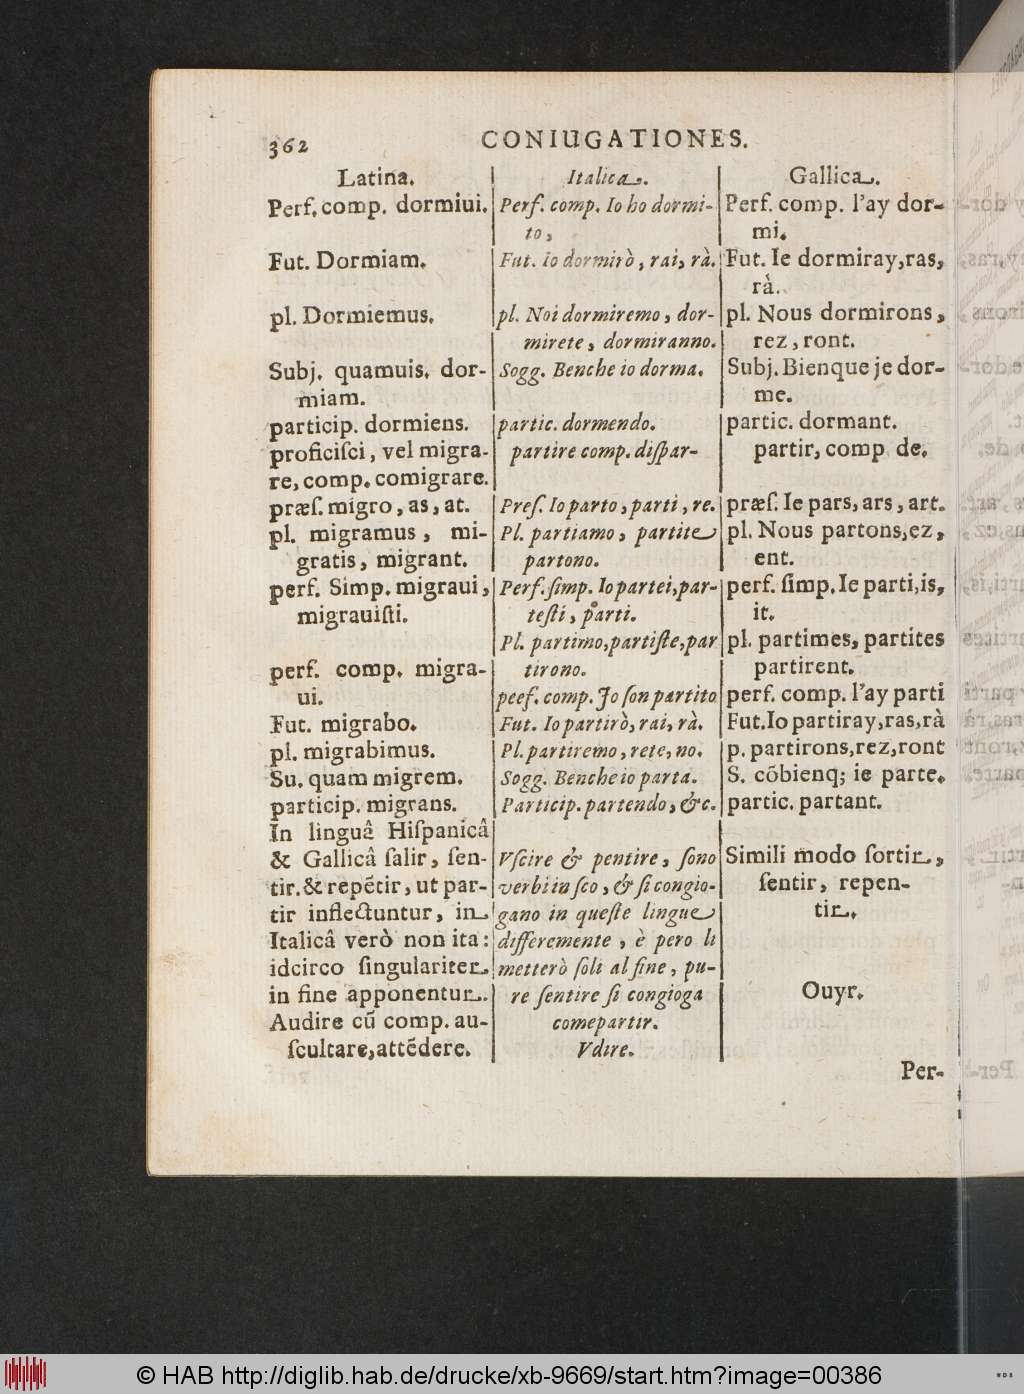 362
CONIUGATIONES.
Latina.
Perf. comp. dormiui.
Fut. Dormiam.
pl. Dormiemus.
Subj. quamuis. dor-
miam.
particip. dormiens.
proficiſci, vel migra-
re, comp. comigrare.
præſ. migro, as, at.
pl. migramus, mi-
gratis, migrant.
perf. Simp. migraui,
migrauiſti.
perf. comp. migra-
ui.
Fut. migrabo.
pl. migrabimus.
Su. quam migrem.
particip. migrans.
In linguâ Hiſpanicâ
& Gallicâ ſalir, ſen-
tir. & repẽtir, ut par-
tir inflectuntur, in
Italicâ verò non ita:
idcirco ſingulariter
in fine apponentur.
Audire cũ comp. au-
ſcultare, attẽdere.
Italica.
Perf. comp. Io ho dormi-
to,
Fut. io dormirò, rai, rà.
pl. Noi dormiremo, dor-
mirete, dormiranno.
Sogg. Benche io dorma.
partic. dormendo.
partire comp. diſpar-
Preſ. Io parto, parti, re.
Pl. partiamo, partite
partono.
Perf. ſimp. Io partei, par-
teſti, parti.
Pl. partimo, partiſte, par
tirono.
peef. comp. Jo ſon partito
Fut. Io partirò, rai, rà.
Pl. partiremo, rete, no.
Sogg. Benche io parta.
Particip. partendo, &c.
Vſcire & pentire, ſono
verbi in ſco, & ſi congio-
gano in queſte lingue
differemente, è pero li
metterò ſoli al fine, pu-
re ſentire ſi congioga
come partir.
Vdire.
Gallica.
Perf. comp. l'ay dor-
mi.
Fut. Ie dormiray, ras,
rà.
pl. Nous dormirons,
rez, ront.
Subj. Bienque je dor-
me.
partic. dormant.
partir, comp de.
præſ. Ie pars, ars, art.
pl. Nous partons, ez,
ent.
perf. ſimp. Ie parti, is,
it.
pl. partimes, partites
partirent.
perf. comp. l'ay parti
Fut. Io partiray, ras, rà
p. partirons, rez, ront
S. cõbienq; ie parte.
partic. partant.
Simili modo ſortir,
ſentir, repen-
tir.
Ouyr.
Per-
© HAB http://diglib.hab.de/drucke/xb-9669/start.htm?image=00386